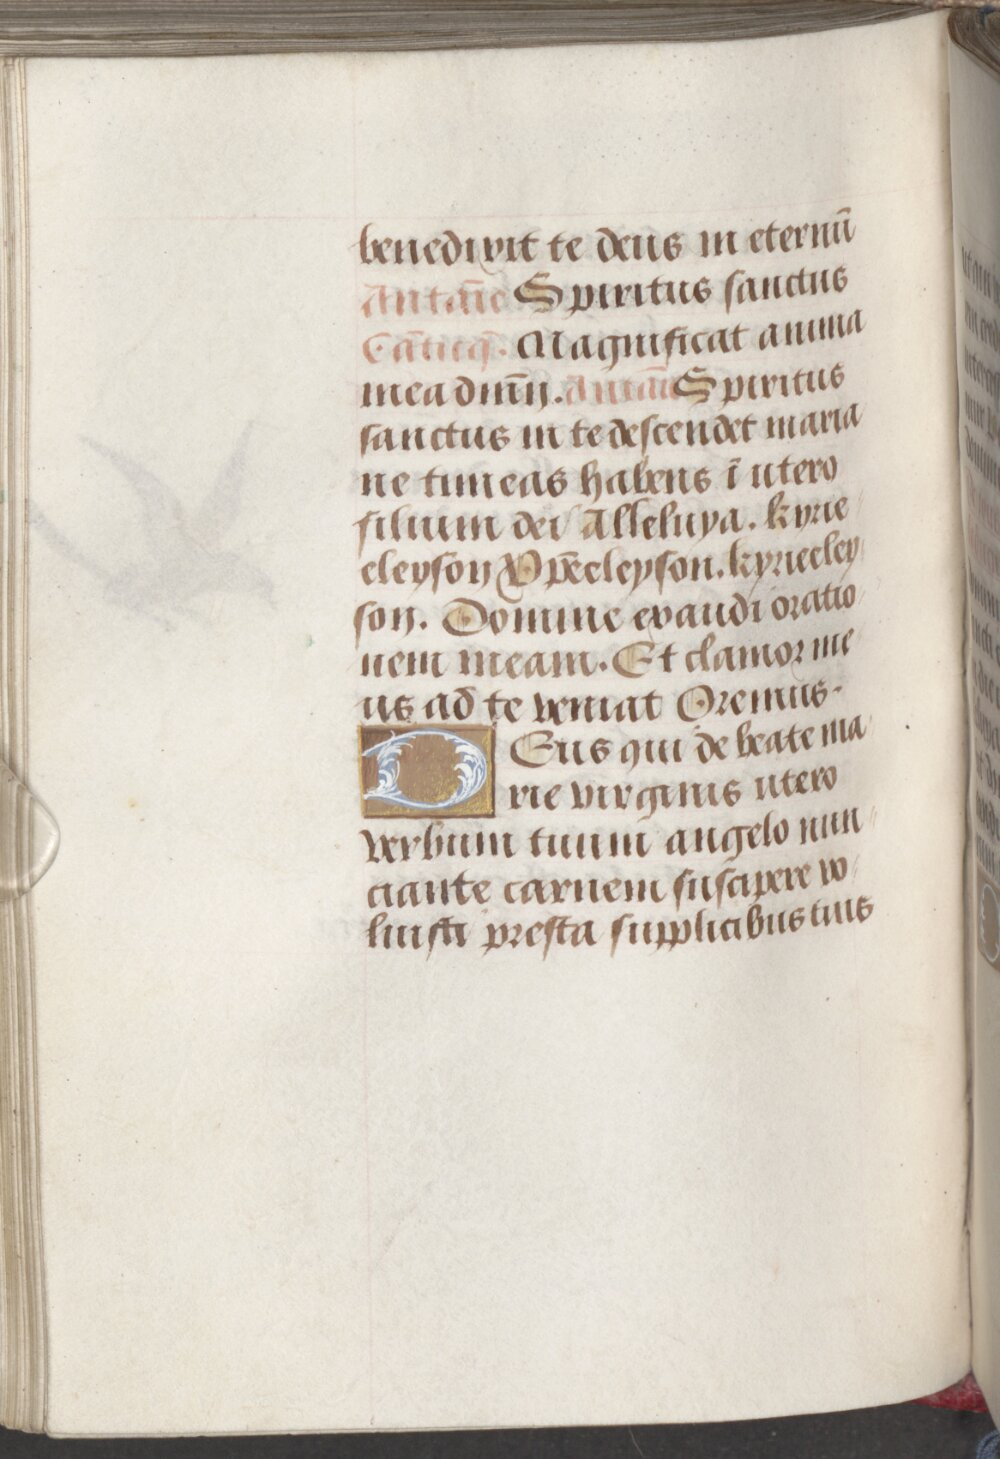 benedixit te deus in eternū
Antāīe Spiritus sanctus
Cātiq̄. Magnificat anima
mea dnm̄ij. Antāīe Spiritus
sanctus in te descendet maria
ne timeas habens ī utero
filium dei Alleluya. kyrie
eleyson Xp̄eeleyson. kyrieeley
son. Domine exaudi oratio
nem meam. Et clamor me
us ad te veniat Oremus.
Deus qui de beate ma
rie virginis utero
verbum tuum angelo nun
ciante carnem suscipere vo
luisti presta supplicibus tuis